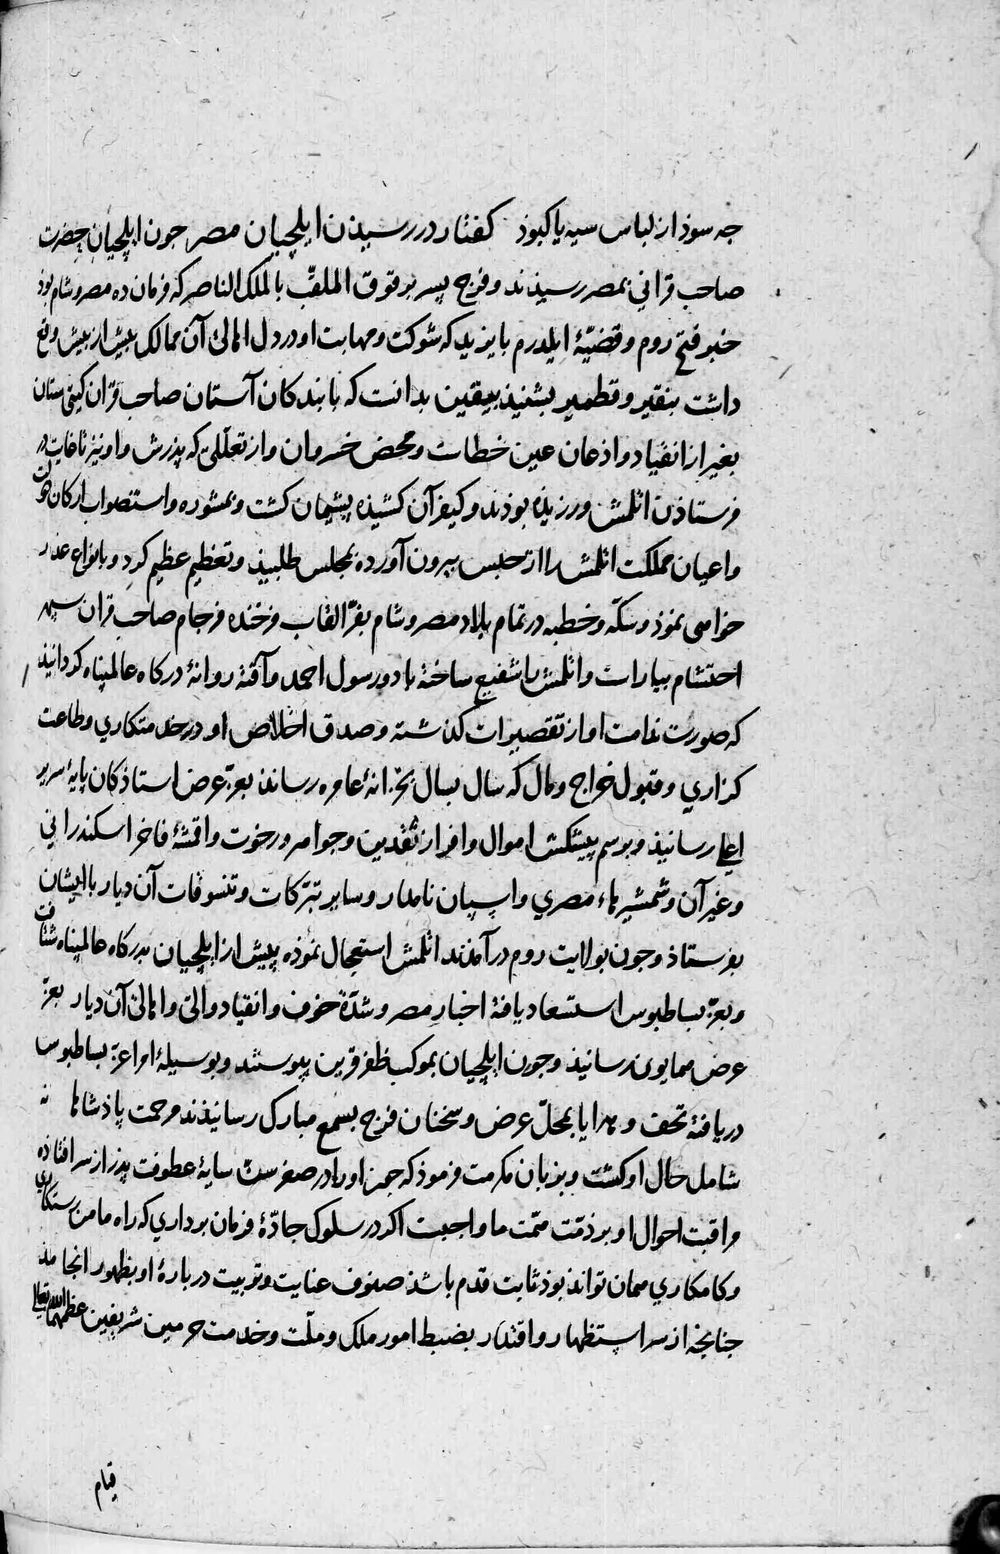 جه سوذ از لباس سیه یا کبوذ کفتار در رسیذن ایلچیان مصر جون ایلچیان حضرت
صاحب قرانی بمصر رسیذند و فرج پسر برقوق الملقّب بالملک الناصر که فرمان ده مصر و شام بوذ
خبر فتح روم و قضیّهٔ ایلدرم بایزید که شوکت و مهابت او در دل اهالئ آن ممالک بیش از بیش وقع
داشت بنقیر و قطمیر بشنیذ بیقین بدانت که با بندکان آستان صاحب قران کیتی ستان
بغیر از انقیاد و اذعان عین خطاست و محض خسران و از تعلّلی که پذرش و او نیز تا غایت در
فرستاذن اتلمش ورزیذه بوذند و کیفر آن کشیذه پشیمان کشت و بمشوره و استصواب ارکان دولت
و اعیان مملکت اتلمش را از حبس بیرون آورده بمجلس طلبیذ و تعظیم عظیم کرد و بانواع عذر
خواهی نموذ و سکّه و خطبه در تمام بلاد مصر و شام بفرّ القاب فرخنده فرجام صاحب قران سپهر
احتشام بیاراست و اتلمش را شفیع ساخته با دو رسول احمد و آقته روانهٔ درکاه عالمپناه کردانیذ
که صورت ندامت او از تقصیرات کذشته و صدق اخلاص او در خدمتکاری و طاعت
کزاری و قبول خراج و مال که سال بسال بخزانهٔ عامره رساند بعزّ عرض استاذکان پایهٔ سریر
اعلی رسانیذ و برسم پیشکش اموال وافر از نقدین و جواهر و رخوت و اقمشهٔ فاخر اسکندرانی
و غیر آن و شمشیرهاء مصری و اسپان نامدار و سایر تبرّکات و تنسوقات آن دیار با ایشان
بفرستاذ و جون بولایت روم در آمذند اتلمش استعجال نموذه پیش از ایلچیان بدرکاه عالمپناه شتافت
و بعزّ بساطبوس استسعاد یافته اخبار مصر و شدّة خوف و انقیاد والی و اهالئ آن دیار بعزّ
عرض همایون رسانیذ و جون ایلچیان بموکب ظفر قرین پیوستند و بوسیلهٔ امرا عزّ بساطبوس
دریافته تحف و هدایا بمحلّ عرض و سخنان فرج بسمع مبارک رسانیذند مرحمت پاذشاهانه
شامل حال او کشت و بزبان مکرمت فرموذ که جمن او را در صغر سنّ سایهٔ عطوفت پذر از سر افتاذه
مراقبت احوال او بر ذمّت همّت ما واجبست اکر در سلوک جادّهٔ فرمان برداری که راه مامن رستکاری
و کامکاری همان تواند بوذ ثابت قدم باشذ صنوف عنایت و تربیت در بارهٔ او بظهور انجامذ
جنانجه از سر استظهار و اقتدار بضبط امور ملک و ملّت و خدمت حرمین شریفین عظّمهما الله تعالی
قیام